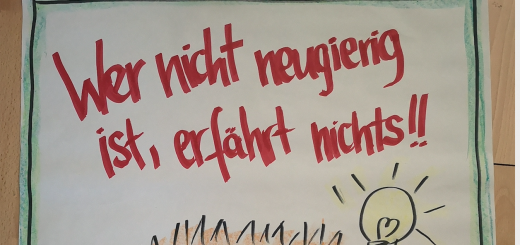 Wer nicht neugierig
ist, erfährt nichts!!